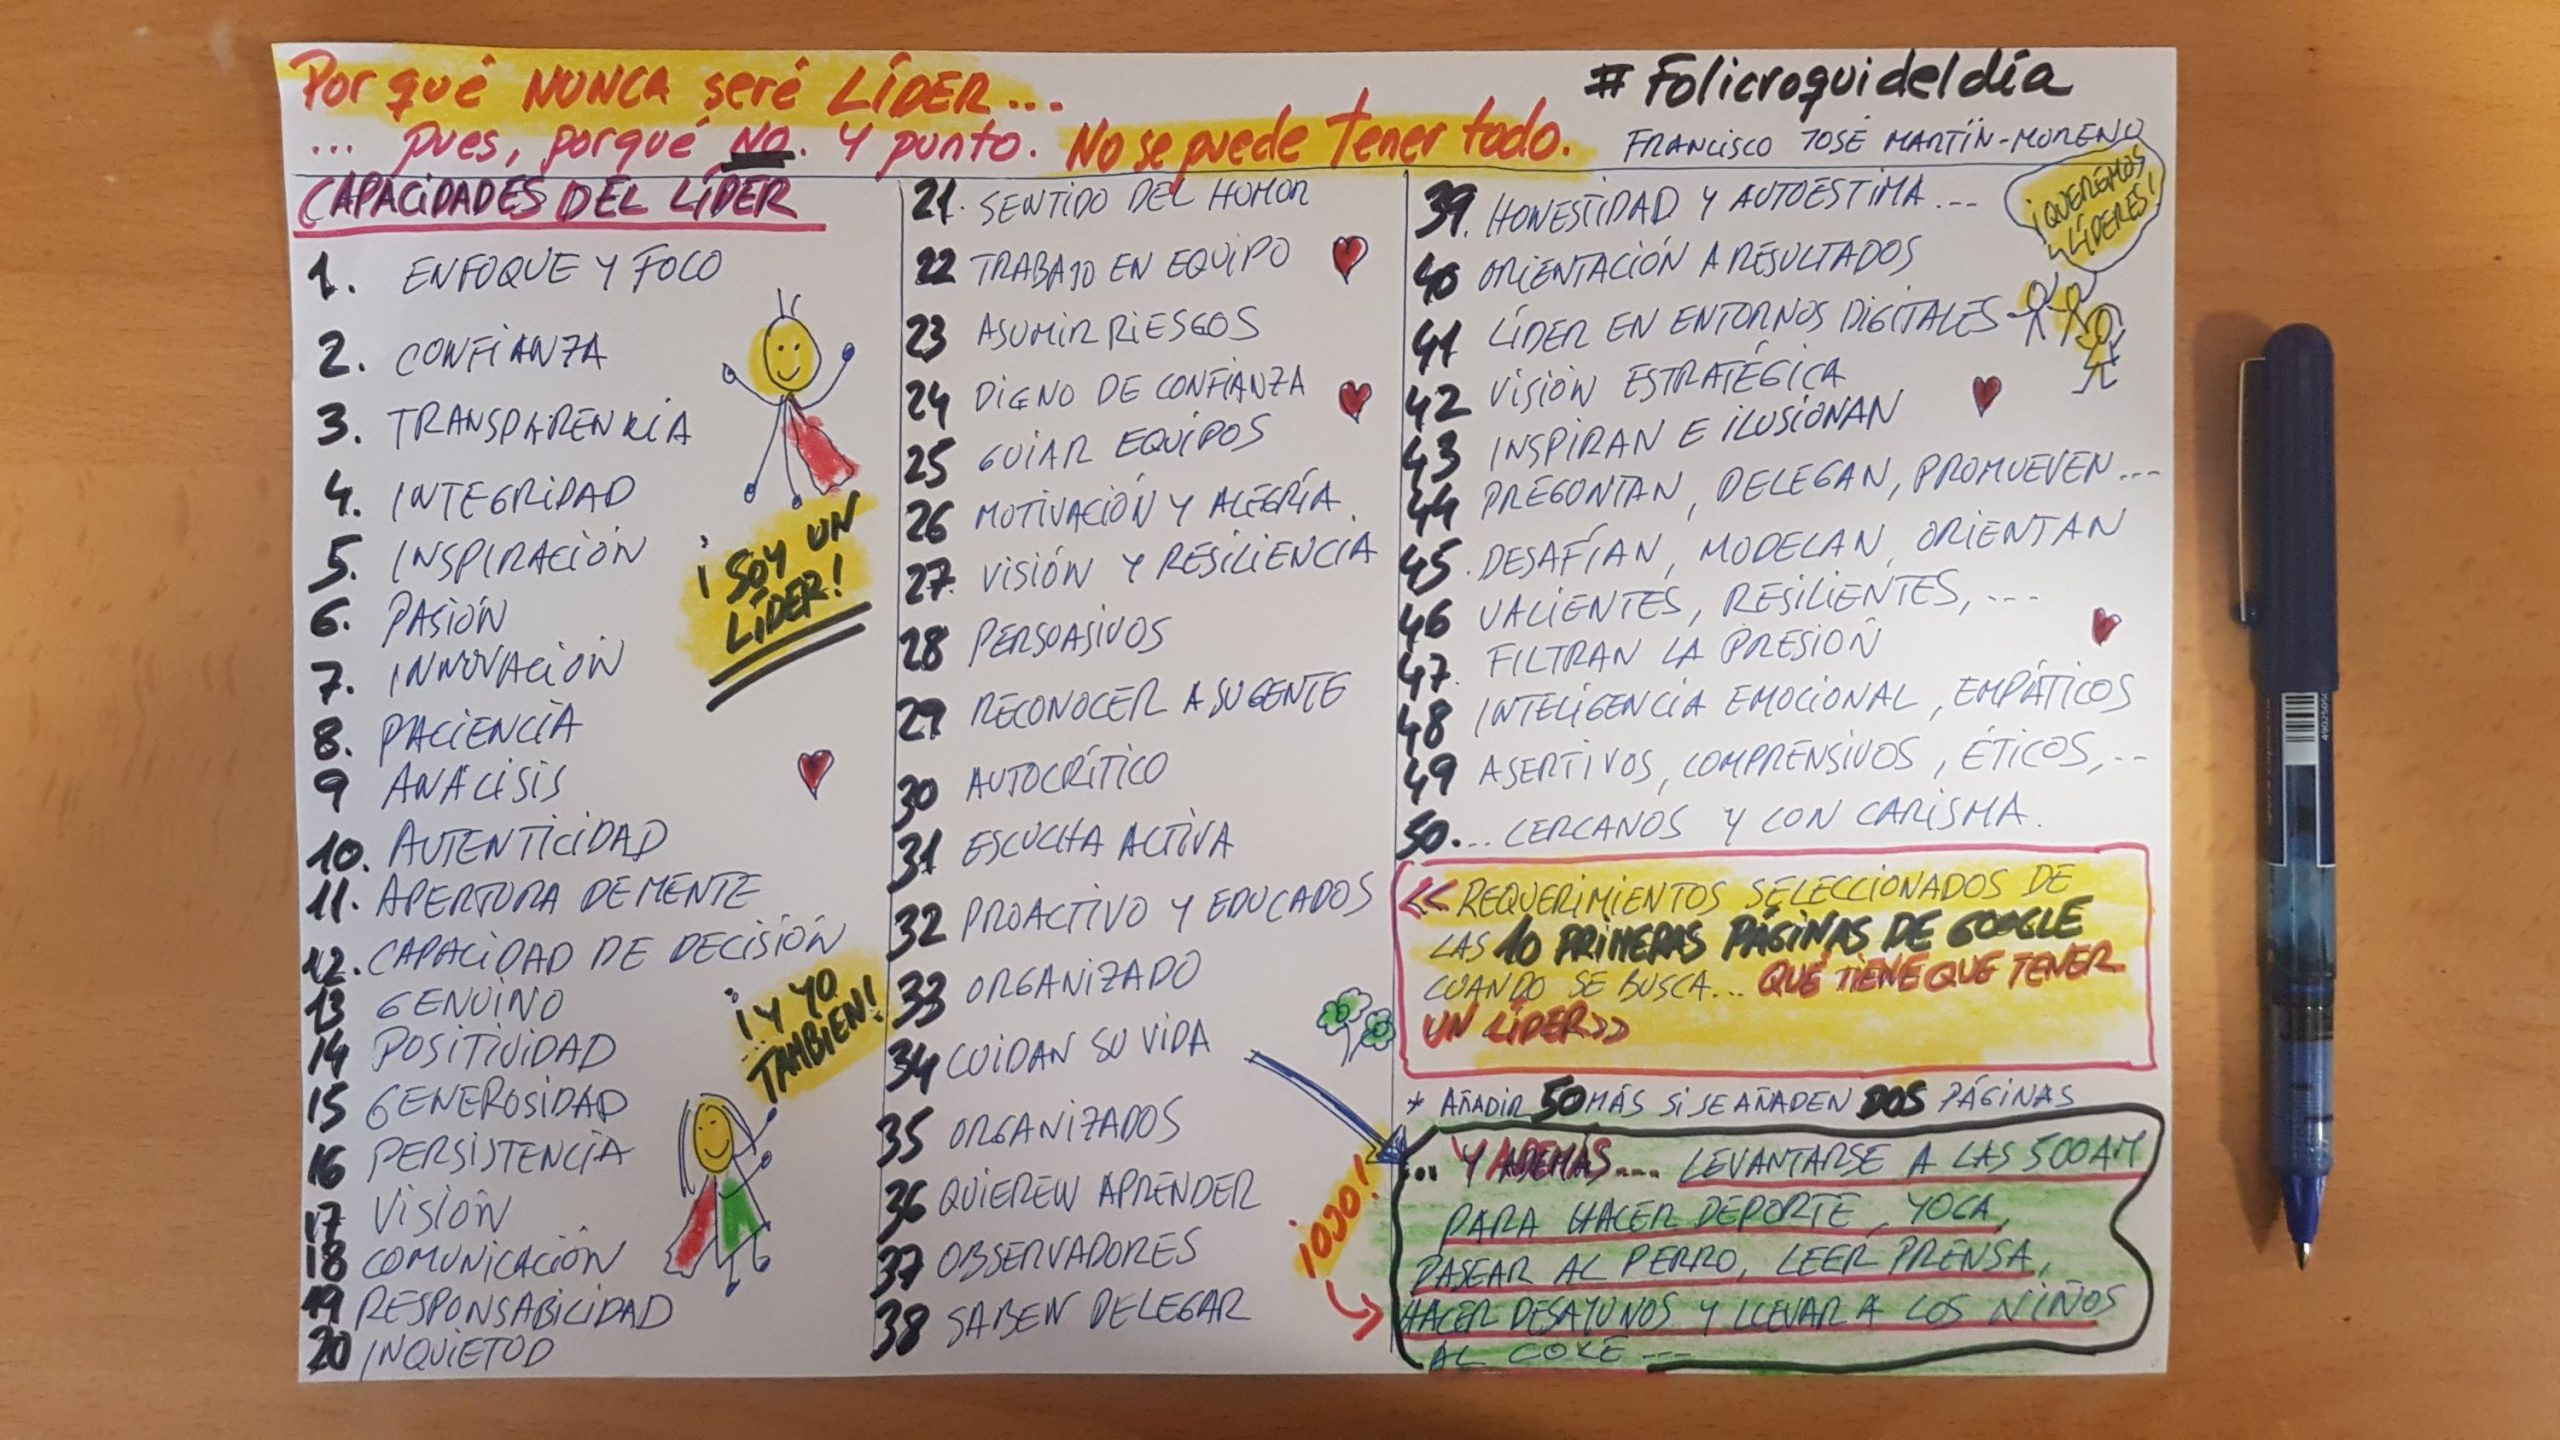 Por qué NUNCA seré LÍDER...
... pues, porqué NO. Y punto. No se puede tener todo.
#Folicroquideldía
FRANCISCO JOSÉ MARTÍN-MORENO
CAPACIDADES DEL LÍDER
1. ENFOQUE Y FOCO
2. CONFIANZA
3. TRANSPARENCIA
4. INTEGRIDAD
5. INSPIRACIÓN
6. PASIÓN
7. INNOVACIÓN
8. PACIENCIA
9 ANÁLISIS
10. AUTENTICIDAD
11. APERTURA DE MENTE
12. CAPACIDAD DE DECISIÓN
13 GENUINO
14 POSITIVIDAD
15 GENEROSIDAD
16 PERSISTENCIA
17 VISIÓN
18 COMUNICACIÓN
19 RESPONSABILIDAD
20 INQUIETUD
¡SOY UN
LÍDER!
¡Y YO
TAMBIEN!
21. SENTIDO DEL HUMOR
22 TRABAJO EN EQUIPO
23 ASUMIR RIESGOS
24 DIGNO DE CONFIANZA
25 GUIAR EQUIPOS
26 MOTIVACIÓN Y ALEGRÍA
27. VISIÓN Y RESILIENCIA
28 PERSUASIVOS
29 RECONOCER A SU GENTE
30 AUTOCRÍTICO
31 ESCUCHA ACTIVA
32 PROACTIVO Y EDUCADOS
33 ORGANIZADO
34 CUIDAN SU VIDA
35 ORGANIZADOS
36 QUIEREN APRENDER
37 OBSERVADORES
38 SABEN DELEGAR
39. HONESTIDAD Y AUTOESTIMA...
40 ORIENTACIÓN A RESULTADOS
41 LÍDER EN ENTORNOS DIGITALES
42 VISIÓN ESTRATÉGICA
43 INSPIRAN E ILUSIONAN
44 PREGUNTAN, DELEGAN, PROMUEVEN...
45. DESAFÍAN, MODELAN, ORIENTAN
46 VALIENTES, RESILIENTES,...
47. FILTRAN LA PRESIÓN
48 INTELIGENCIA EMOCIONAL, EMPÁTICOS
49 ASERTIVOS, COMPRENSIVOS, ÉTICOS,...
50.... CERCANOS Y CON CARISMA.
¡QUEREMOS
LÍDERES!
<<REQUERIMIENTOS SELECCIONADOS DE
LAS 10 PRIMERAS PÁGINAS DE GOOGLE
CUANDO SE BUSCA... QUÉ TIENE QUE TENER
UN LÍDER>>
* AÑADIR 50 MÁS SI SE AÑADEN DOS PÁGINAS
¡OJO!
... Y ADEMÁS... LEVANTARSE A LAS 500AM
PARA HACER DEPORTE, YOGA,
PASEAR AL PERRO, LEER PRENSA,
HACER DESAYUNOS Y LLEVAR A LOS NIÑOS
AL COLE...